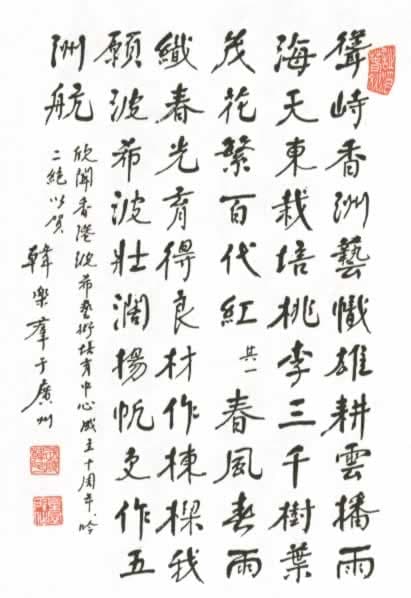 聳峙香洲藝幟雄耕雲播雨
海天東栽培桃李三千樹葉
茂花繁百代紅 其一 春風春雨
織春光育得良材作棟樑我
願波希波壯濶揚帆更作五
洲航
欣聞香港波希藝術培育中心成立十周年、吟
二絕以賀
韓樂羣于廣州